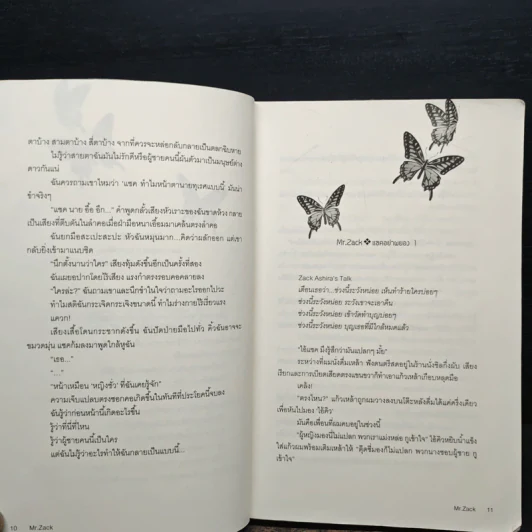 ตาบ้าง สามตาบ้าง สี่ตาบ้าง จากที่ควรจะหล่อกลับกลายเป็นตลกฉิบหาย
ไม่รู้ว่าสายตาฉันมันไม่รักดีหรือผู้ชายคนนี้มันตัวมาเป็นมนุษย์ต่าง
ดาวกันแน่
ฉันควรถามเขาไหมว่า 'แซค ทำไมหน้าตานายทุเรศแบบนี้ มันน่า
ขำจริงๆ
"แซค นาย อึ้อ อึก..." คำพูดกลั้วเสียงหัวเราะของฉันขาดห้วง กลาย
เป็นเสียงที่ตีบตันในลำคอเมื่อฝ่ามือหนาเอื้อมมาเคล้นตรงลำคอ
ฉันยกมือสะเปะสะปะ หัวฉันหมุนมาก...คิดว่าผลักออก แต่เขา
กลับยิ่งเข้ามาแนบชิด
"นึกตั้งนานว่าใคร" เสียงทุ้มดังขึ้นอีกเป็นครั้งที่สอง
ฉันเผยอปากโดยไร้เสียง แรงกำตรงรอบคอคลายลง
"ใครล่ะ?" ฉันถามเขาและนึกขำในใจว่าถามอะไรออกไปวะ
ทำไมสติฉันกระเจิดกระเจิงขนาดนี้ ทำไมร่างกายไร้เรี่ยวแรง
แควก!
เสียงเสื้อโดนกระชากดังขึ้น ฉันปัดป่ายมือไปทั่ว คิ้วฉันอาจจะ
ขมวดมุ่น แซคก้มลงมาพูดใกล้หูฉัน
"เธอ..."
"..."
"หน้าเหมือน 'หญิงชั่ว' ที่ฉันเคยรู้จัก"
ความเจ็บแปลบตรงซอกคอเกิดขึ้นในทันทีที่ประโยคนี้จบลง
ฉันรู้ว่าก่อนหน้านี้เกิดอะไรขึ้น
รู้ว่าที่นี่ที่ไหน
รู้ว่าผู้ชายคนนี้เป็นใคร
แต่ฉันไม่รู้ว่าอะไรทำให้ฉันกลายเป็นแบบนี้...
10 Mr.Zack
Mr.Zack ❖ แซคอย่าเผลอ 1
Zack Ashira's Talk
เตือนเธอว่า.. ช่วงนี้ระวังหน่อย เห็นทำร้ายใครบ่อยๆ
ช่วงนี้ระวังหน่อย ระวังเขาจะเอาคืน
ช่วงนี้ระวังหน่อย เข้าวัดทำบุญบ่อยๆ
ช่วงนี้ระวังหน่อย บุญเธอที่มีใกล้หมดแล้ว
"ไอ้แซค มึงรู้สึกว่ามันแปลกๆ มั้ย"
ระหว่างที่ผมนั่งดื่มเหล้า ฟังดนตรีสดอยู่ในร้านนั่งชิลกึ่งผับ เสียง
เรียกและการเบียดเสียดตรงแขนขวาก็ทำเอาแก้วเหล้าเกือบหลุดมือ
เคล้ง!
"ตรงไหน?" แก้วเหล้าถูกผมวางลงบนโต๊ะหลังดื่มได้แค่ครึ่งเดียว
เพื่อหันไปมอง 'ไอ้คิว'
มันคือเพื่อนที่ผมคบอยู่ในช่วงนี้
"ผู้หญิงมองนี่ไม่แปลก พวกเราแม่งหล่อ กูเข้าใจ" ไอ้คิวหยิบน้ำแข็ง
ใส่แก้วผมพร้อมเติมเหล้าให้ "ตุ๊ดซี่มองก็ไม่แปลก พวกนางชอบผู้ชาย กู
เข้าใจ"
Mr.Zack 11